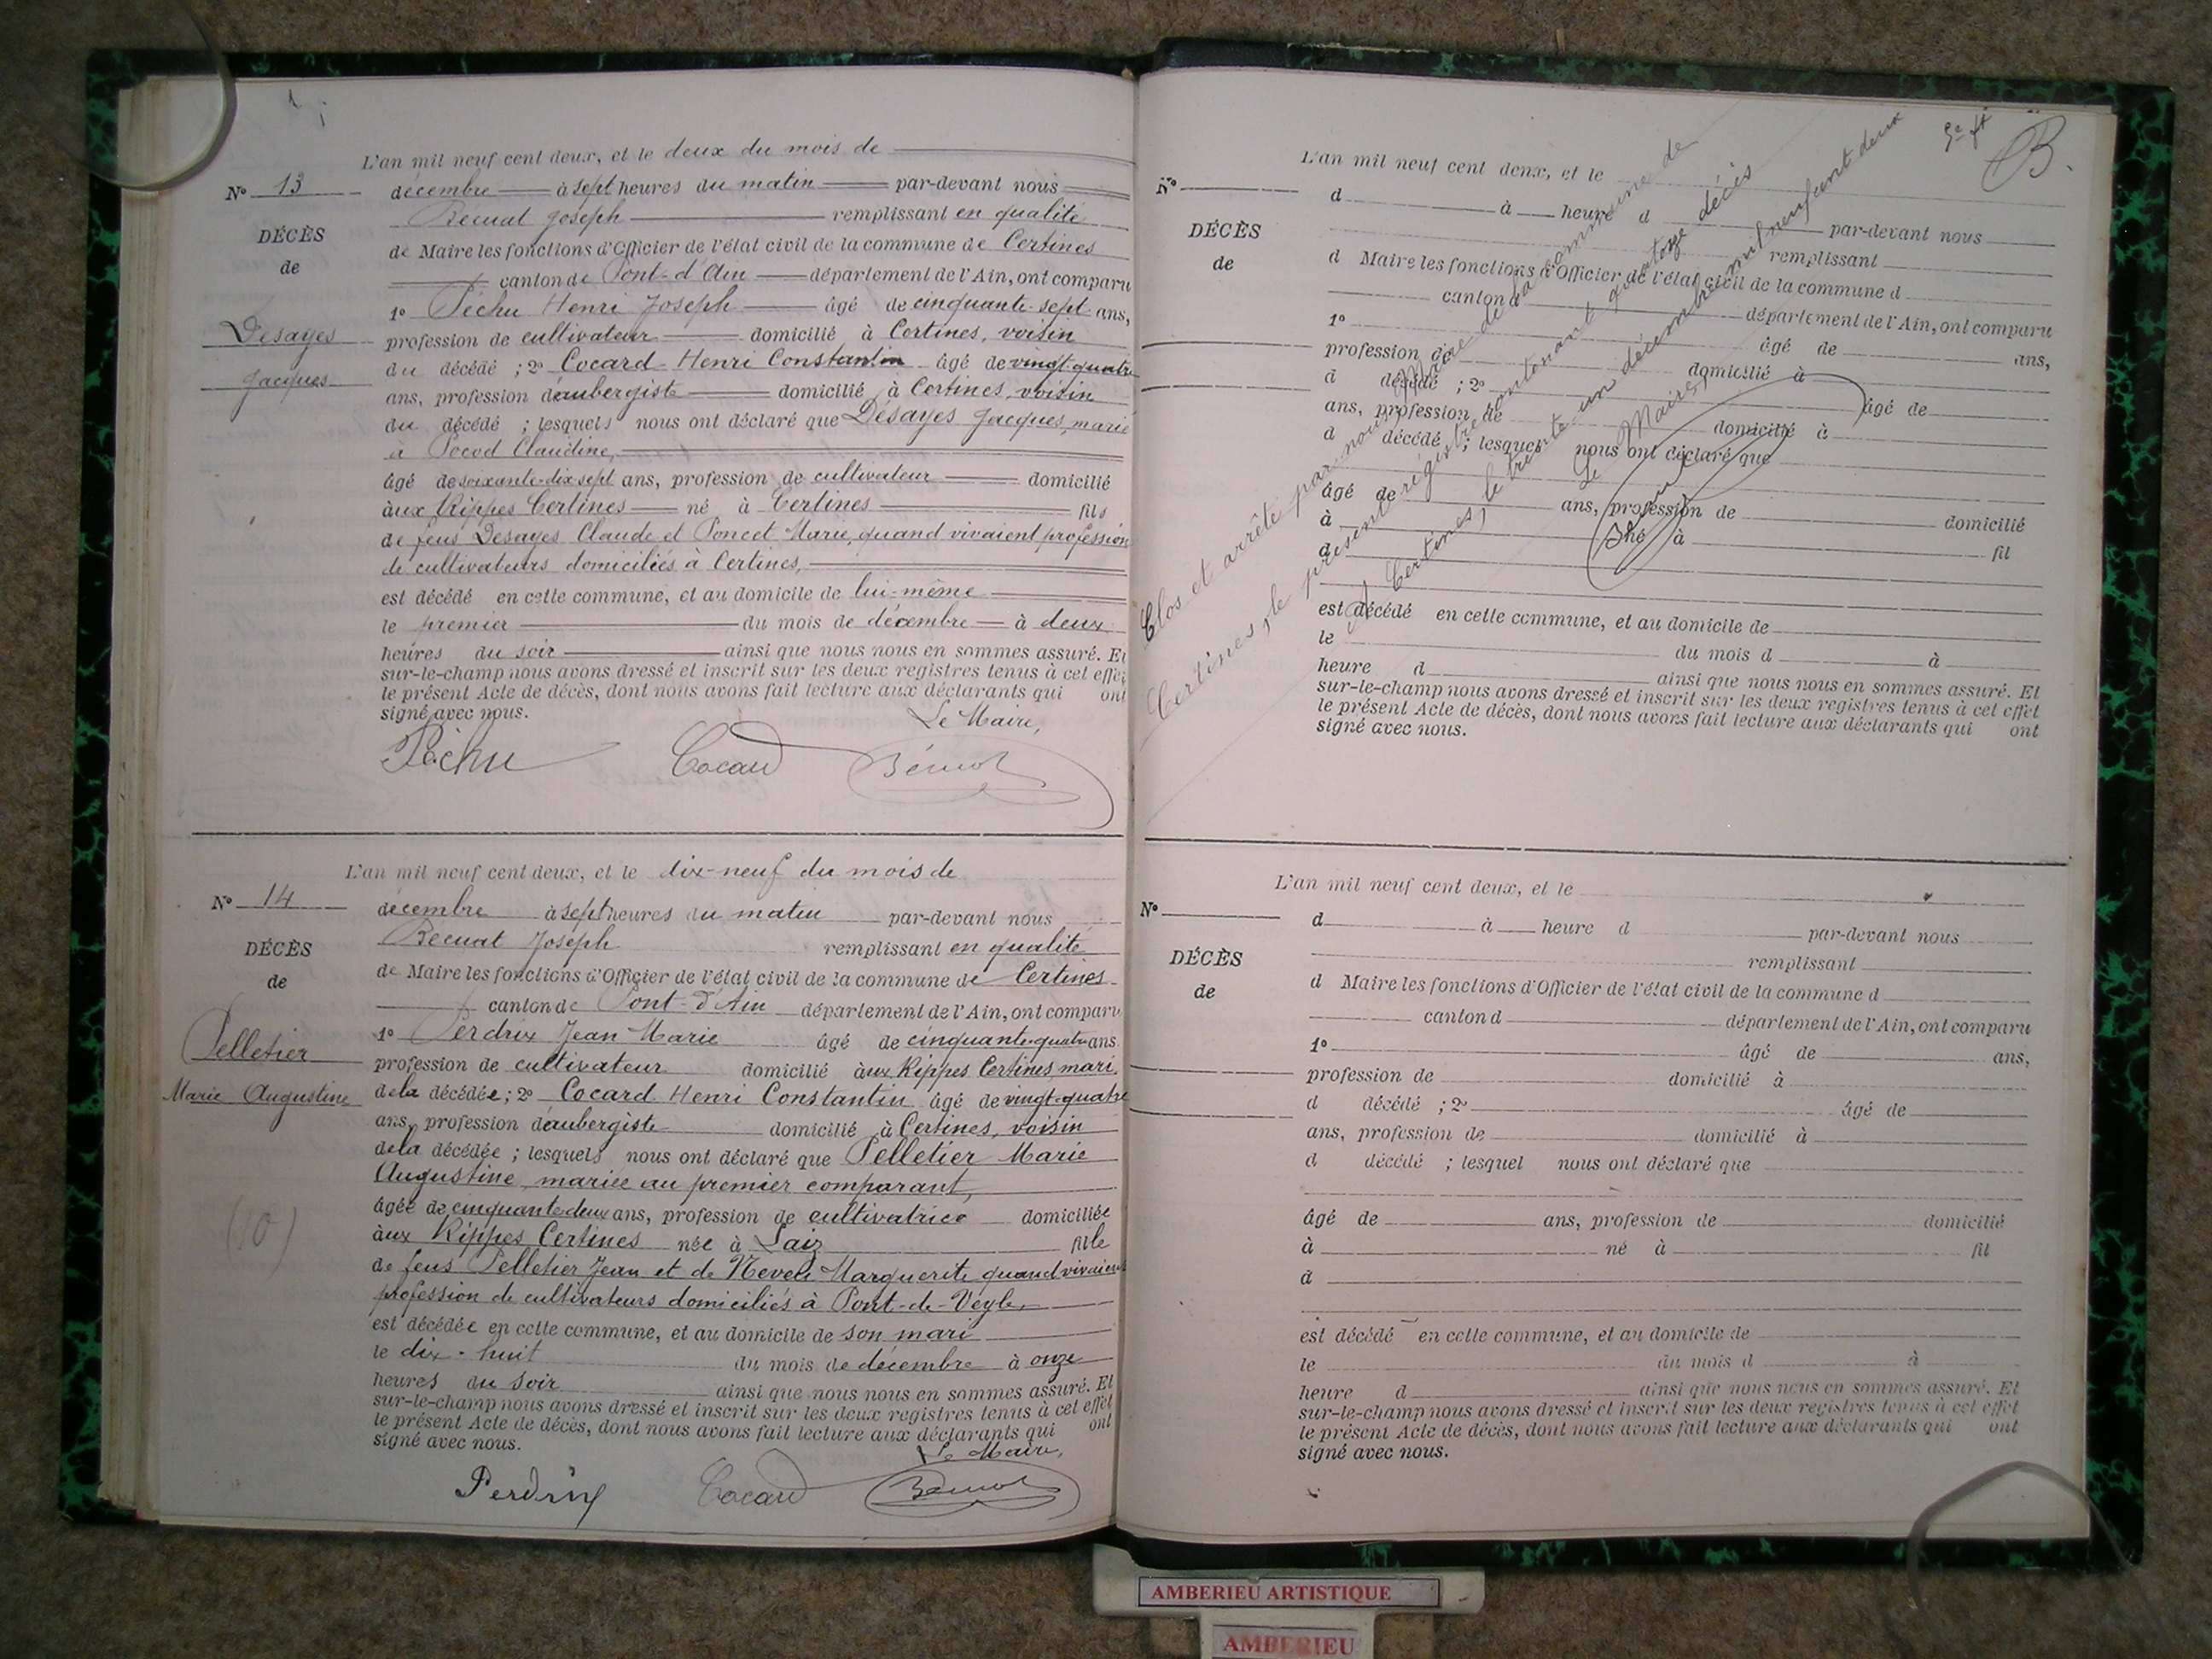 L'an mil neuf cent deux, et le deux du mois de
N° 13
décembre à sept heures du matin par-devant nous
Joseph remplissant en qualité
DÉCÈS
de Maire les fonctions d'Officier de l'état civil de la commune de Certines
de
canton de Pont-d'Ain département de l'Ain, ont comparu
1° Péchu Henri Joseph âgé de cinquante-sept ans,
Desayes
profession de cultivateur domicilié à Certines, voisin
du décédé ; 2° Cocard Henri Constantin âgé de vingt-quatre
Jacques
ans, profession d'aubergiste domicilié à Certines, voisin
du décédé ; lesquels nous ont déclaré que Désayes Jacques, marié
à Claudine,
âgé de soixante-dix sept ans, profession de cultivateur domicilié
aux Rippes Certines né à Certines fils
de feus Desayes Claude et Poncet Marie, quand vivaient profession
de cultivateurs domiciliés à Certines,
est décédé en cette commune, et au domicile de lui-même
le premier du mois de décembre à deux
heures du soir ainsi que nous nous en sommes assuré. Et
sur-le-champ nous avons dressé et inscrit sur les deux registres tenus à cet effet
le présent Acte de décès, dont nous avons fait lecture aux déclarants qui ont
signé avec nous.
Le Maire,
Péchu Cocard
L'an mil neuf cent deux, et le dix-neuf du mois de
N° 14
décembre à sept heures du matin par-devant nous
Joseph remplissant en qualité
DÉCÈS
de Maire les fonctions d'Officier de l'état civil de la commune de Certines
de
canton de Pont-d'Ain département de l'Ain, ont comparu
1° Perdrix Jean Marie âgé de cinquante-quatre ans
Pelletier
profession de cultivateur domicilié aux Rippes Certines mari
Marie Augustine
de la décédée ; 2° Cocard Henri Constantin âgé de vingt-quatre
ans, profession d'aubergiste domicilié à Certines, voisin
de la décédée ; lesquels nous ont déclaré que Pelletier Marie
Augustine mariée au premier comparant,
âgée de cinquante deux ans, profession de cultivatrice domiciliée
aux Rippes Certines née à Laiz fille
(10)
de feus Pelletier Jean et de Marguerite quand vivaient
profession de cultivateurs domiciliés à Pont-de-Veyle,
est décédée en cette commune, et au domicile de son mari
le dix-huit du mois de décembre à onze
heures du soir ainsi que nous nous en sommes assuré. Et
sur-le-champ nous avons dressé et inscrit sur les deux registres tenus à cet effet
le présent Acte de décès, dont nous avons fait lecture aux déclarants qui ont
signé avec nous.
Le Maire,
Perdrix Cocard
B.
L'an mil neuf cent deux, et le
N°
d à heure d par-devant nous
DÉCÈS
remplissant
de
d Maire les fonctions d'Officier de l'état civil de la commune d
canton d département de l'Ain, ont comparu
1° âgé de ans,
profession de domicilié à
d décédé ; 2° âgé de
ans, profession de domicilié à
d décédé ; lesquel nous ont déclaré que
âgé de ans, profession de domicilié
à né à fil
d
est décédé en cette commune, et au domicile de
le du mois d à
heure d ainsi que nous nous en sommes assuré. Et
sur-le-champ nous avons dressé et inscrit sur les deux registres tenus à cet effet
le présent Acte de décès, dont nous avons fait lecture aux déclarants qui ont
signé avec nous.
Clos et arrêté par nous Maire de la commune de
Certines, le présent régistre contenant quatorze décès
A Certines, le trente-un décembre mil neuf cent deux
Le Maire,
L'an mil neuf cent deux, et le
N°
d à heure d par-devant nous
DÉCÈS
remplissant
de
d Maire les fonctions d'Officier de l'état civil de la commune d
canton d département de l'Ain, ont comparu
1° âgé de ans,
profession de domicilié à
d décédé ; 2° âgé de
ans, profession de domicilié à
d décédé ; lesquel nous ont déclaré que
âgé de ans, profession de domicilié
à né à fil
d
est décédé en cette commune, et au domicile de
le du mois d à
heure d ainsi que nous nous en sommes assuré. Et
sur-le-champ nous avons dressé et inscrit sur les deux registres tenus à cet effet
le présent Acte de décès, dont nous avons fait lecture aux déclarants qui ont
signé avec nous.
AMBERIEU ARTISTIQUE
AMBERIEU